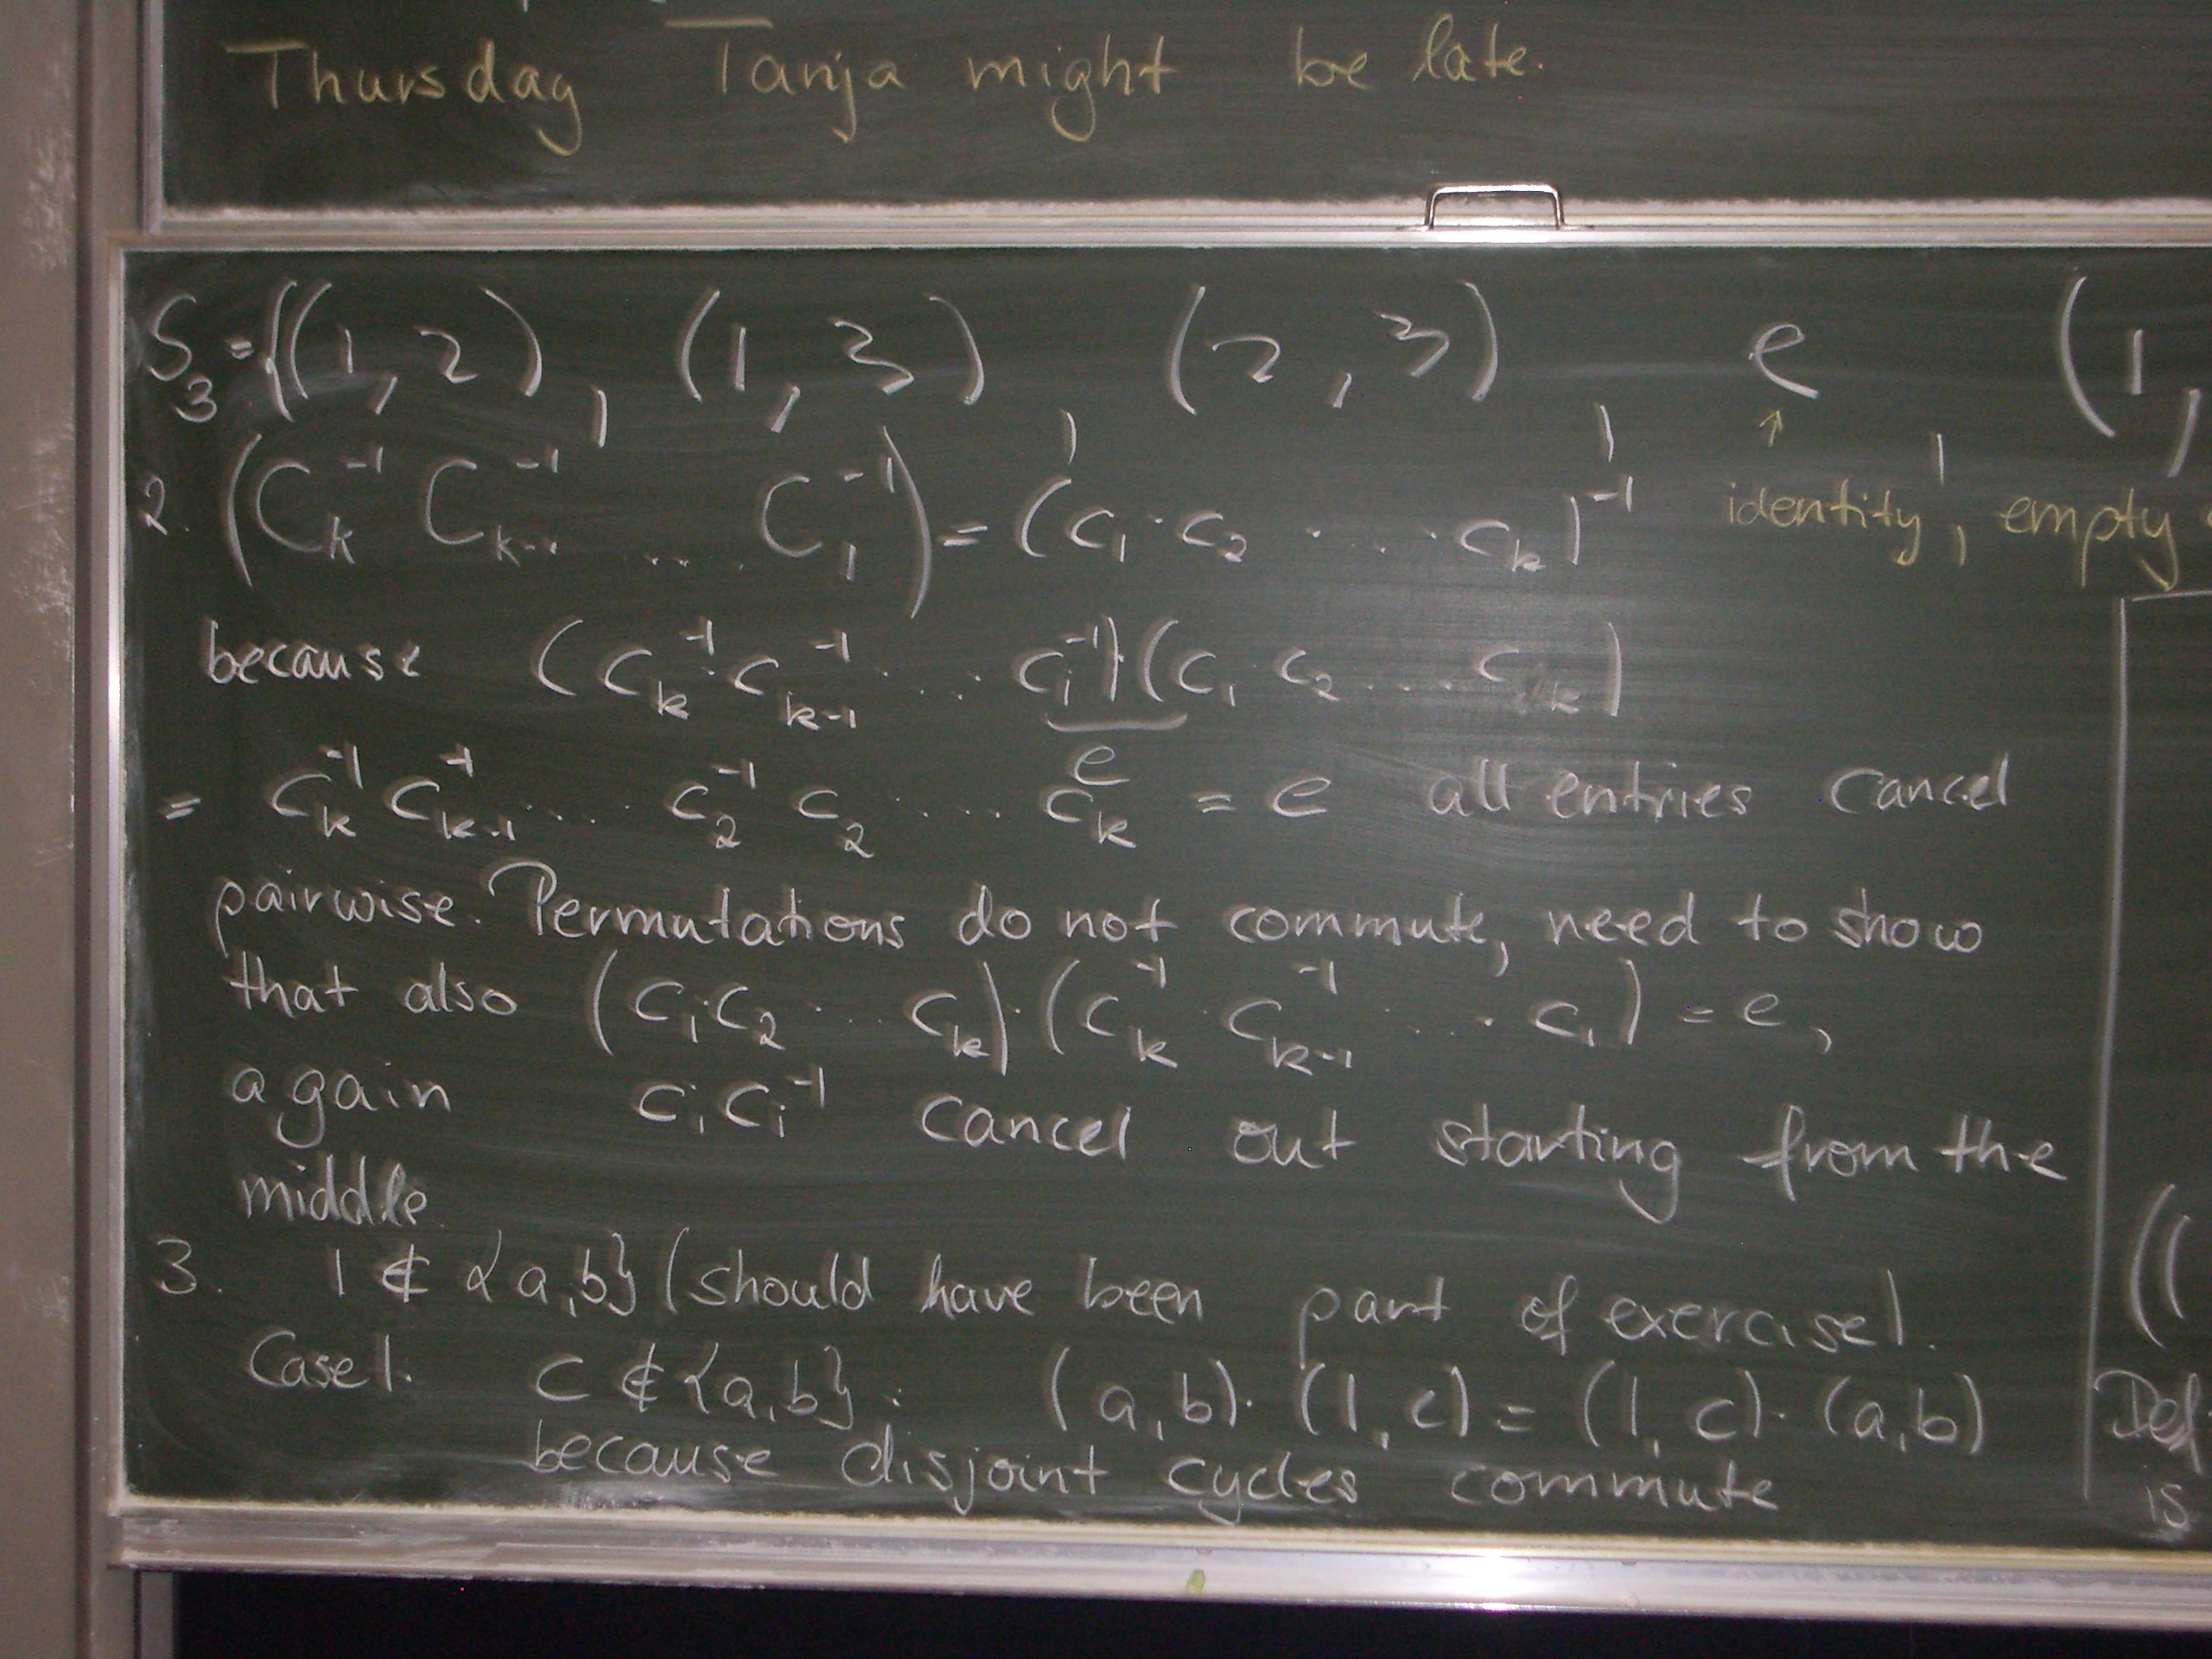 Thursday Tanja might be late.
S₃ = {(1,2), (1,3), (2,3), e, (1,
identity, empty
2. (C_k^{-1} C_{k-1}^{-1} ... C_1^{-1}) = (c_1 · c_2 · ... · c_k)^{-1}
because (c_k^{-1} · c_{k-1}^{-1} · ... c_1^{-1})(c_1 · c_2 .... c_k)
e
= c_k^{-1} c_{k-1}^{-1} ... c_2^{-1} c_2 .... c_k = e all entries cancel
pairwise. Permutations do not commute, need to show
that also (c_1 c_2 ... c_k) · (c_k^{-1} · c_{k-1}^{-1} .... c_1) = e,
again c_i c_i^{-1} cancel out starting from the
middle.
3. 1 ∉ {a,b} (should have been part of exercise).
Case 1. c ∉ {a,b}: (a,b)· (1,c) = (1,c)· (a,b)
because disjoint cycles commute
((
Def
is